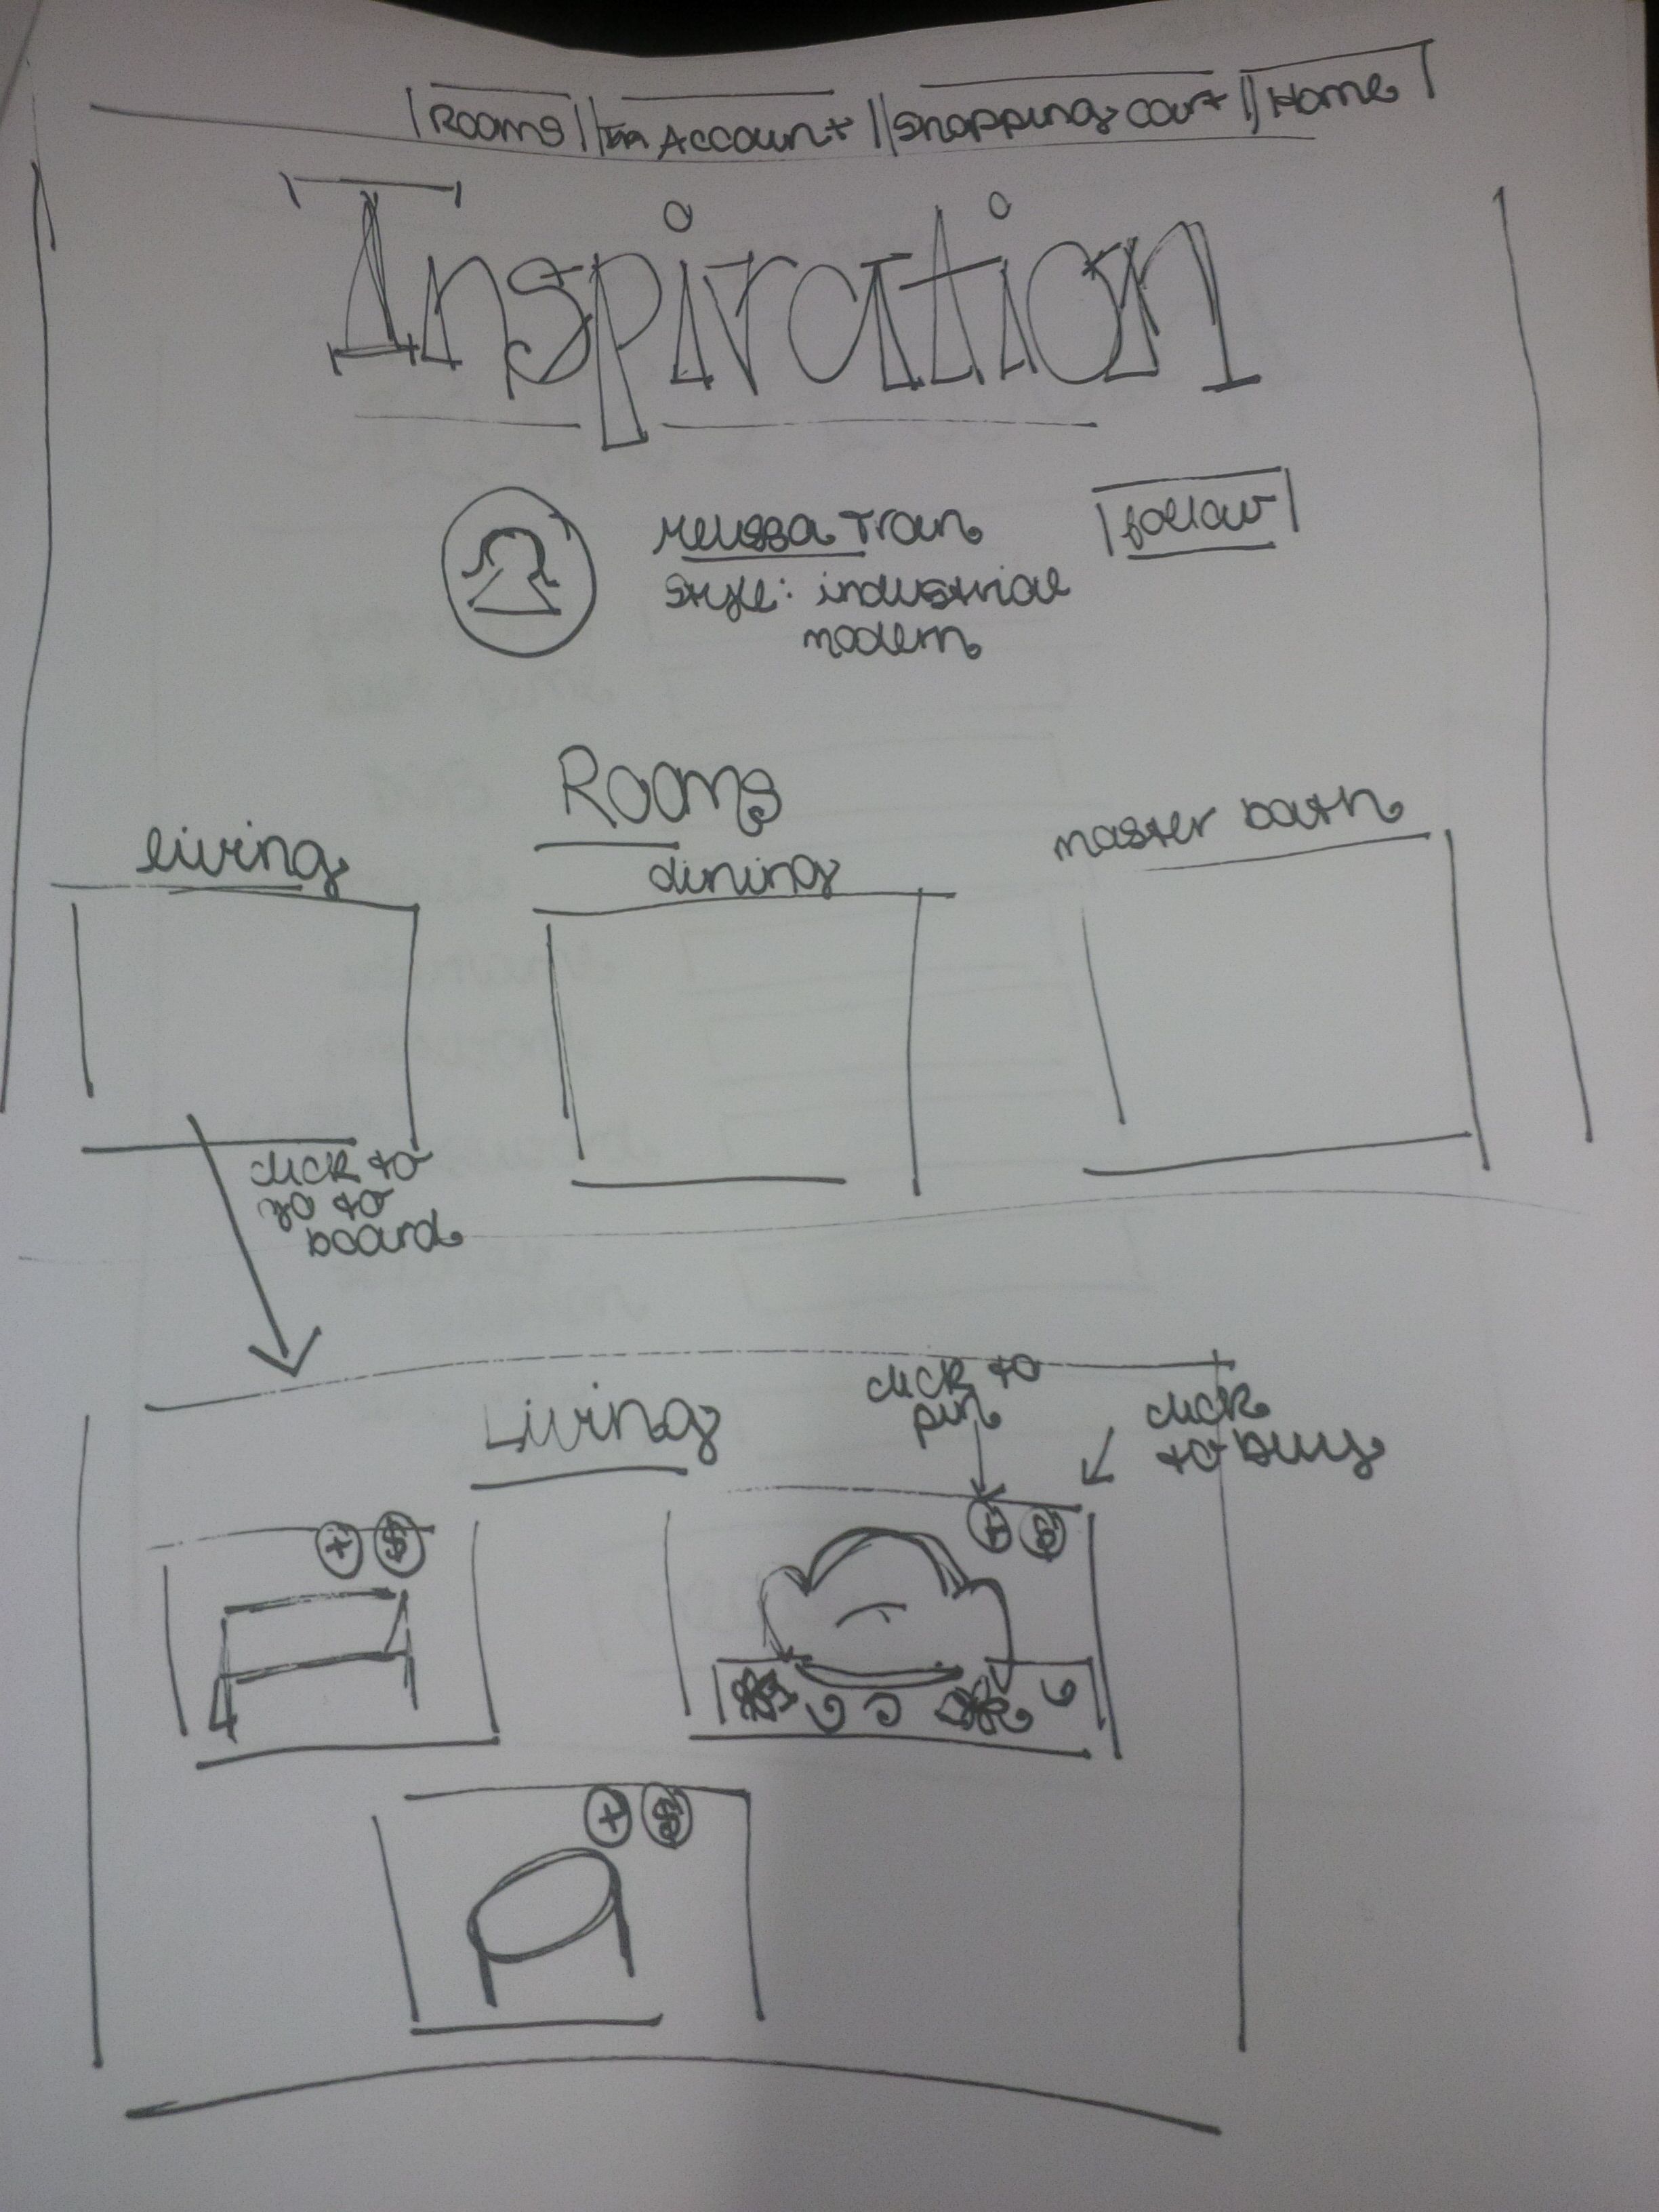 Rooms
Account
Shopping Cart
Home
Inspiration
Melissa Tran
follow
Style: industrial
modern
Rooms
living
dining
master bath
click to
go to
board
Living
click to
pin
click
to buy
+ $
+ $
+ $